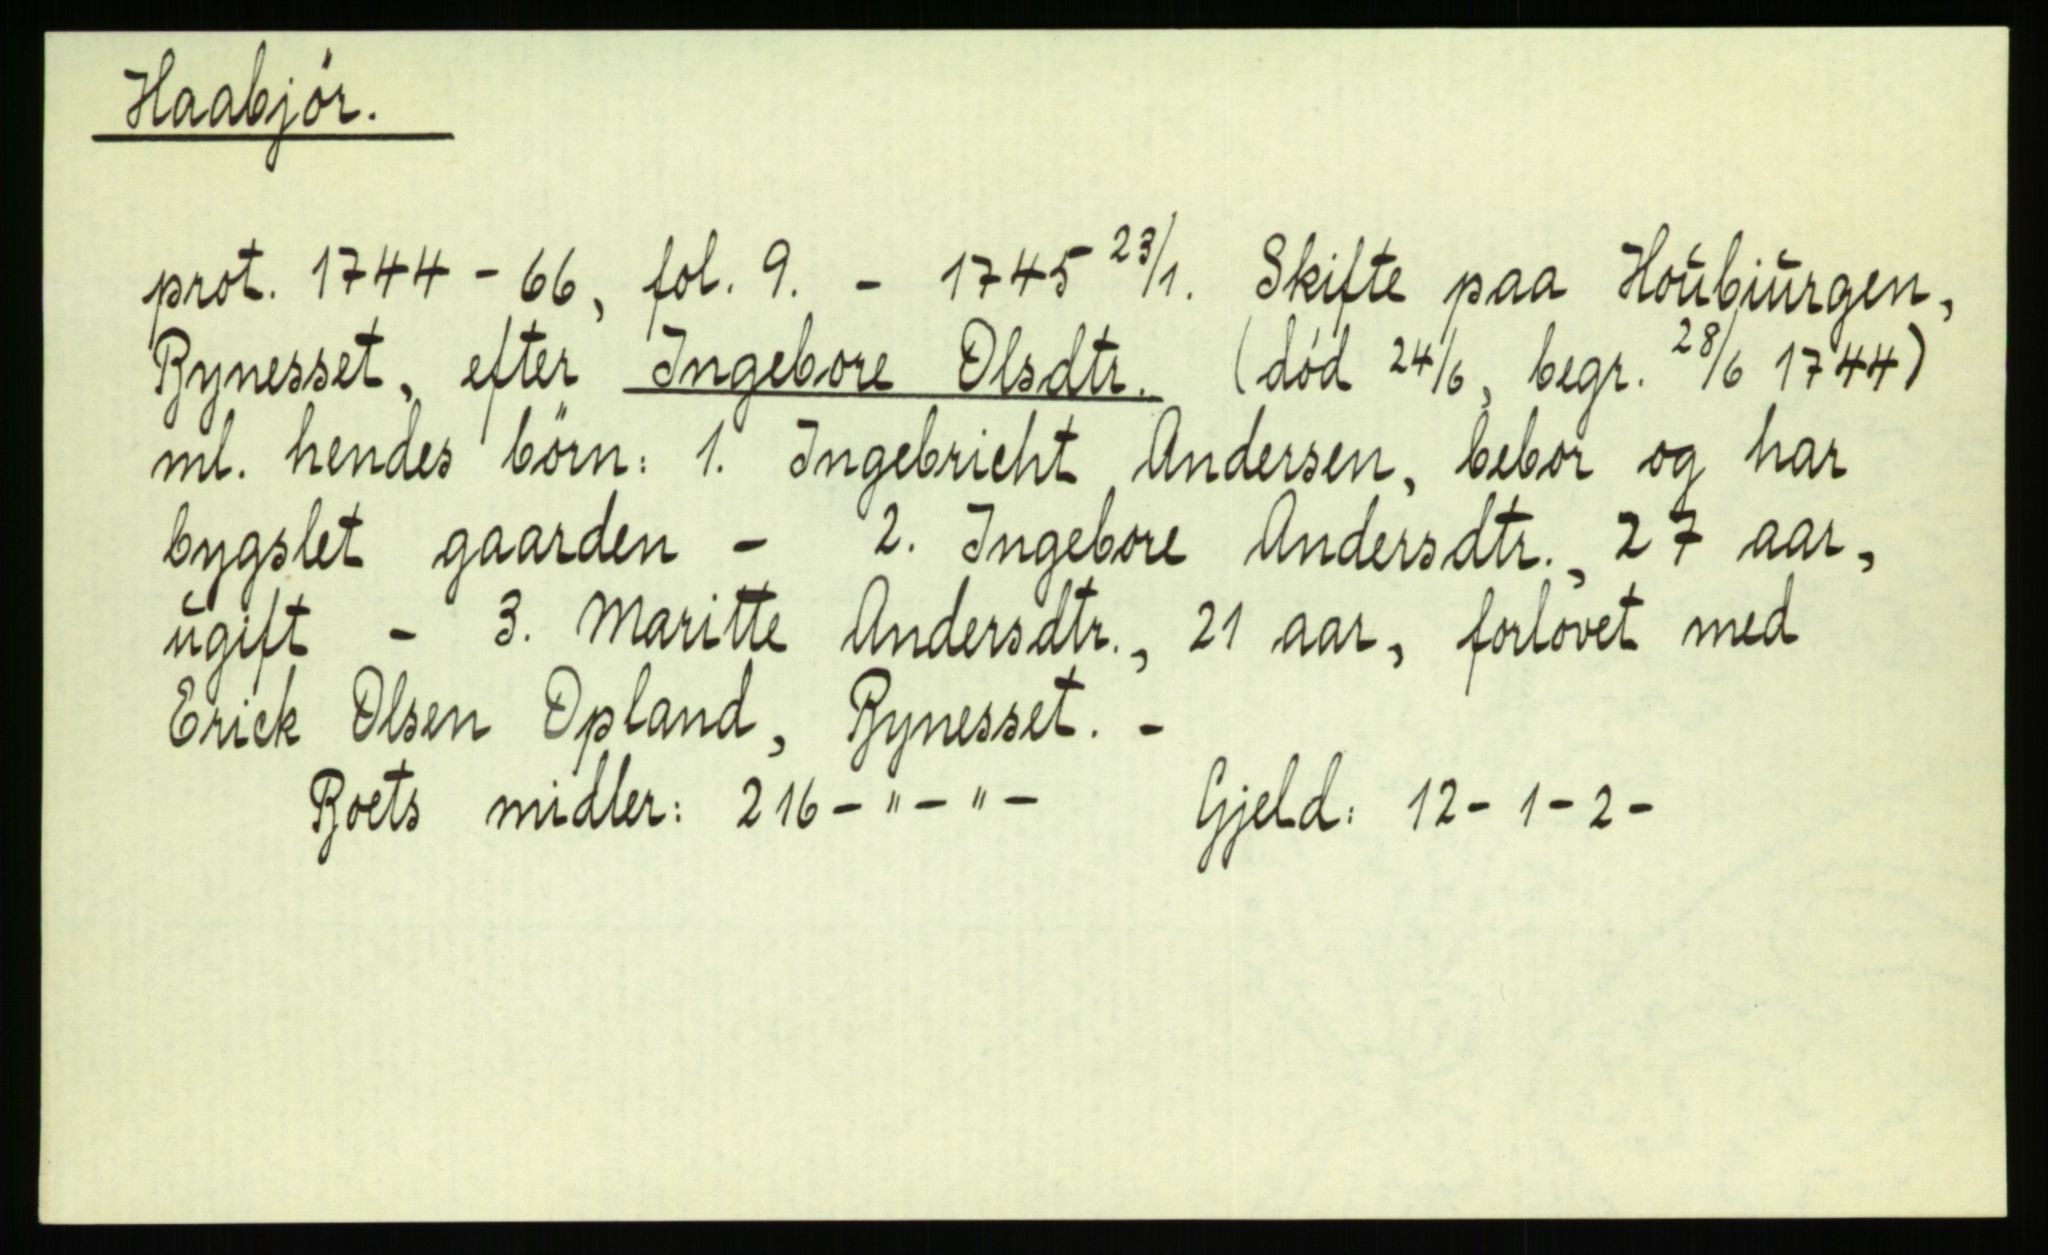 Haabjör.
prot. 1744-66, fol. 9. - 1745 23/1. Skifte paa Houbiurgen,
Bynesset, efter Ingebore Olsdtr. (död 24/6, begr. 28/6 1744)
ml. hendes börn: 1. Ingebricht Andersen, bebor og har
bygslet gaarden - 2. Ingebore Andersdtr., 27 aar,
ugift - 3. Maritte Andersdtr., 21 aar, forlovet med
Erick Olsen Opland, Bynesset. -
Boets midler: 216-"-"- Gjeld: 12-1-2-